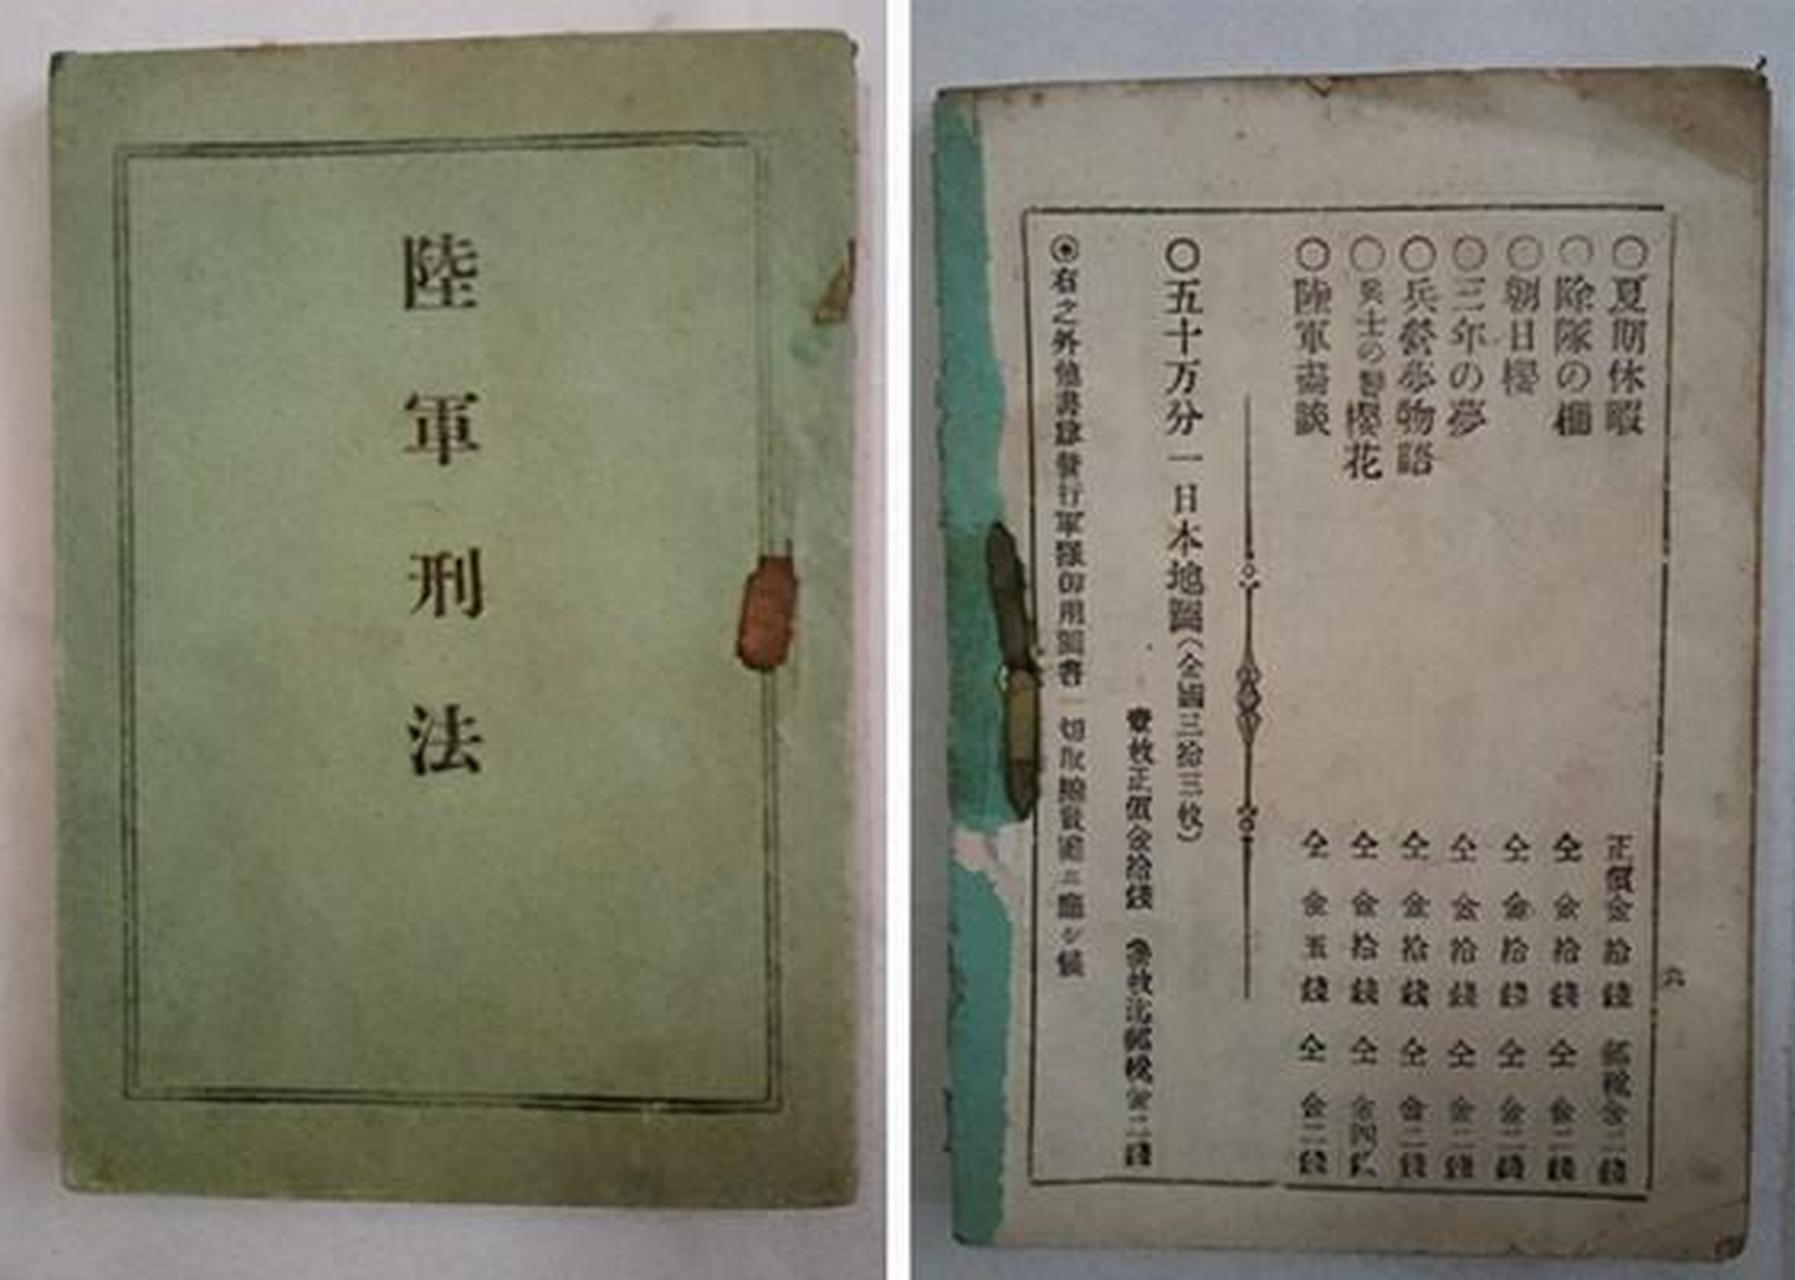 陸軍刑法
○夏期休暇 正價金拾錢 郵稅金二錢
○除隊の 仝 金拾錢 仝 金二錢
○朝日櫻 仝 金拾錢 仝 金二錢
○三年の夢 仝 金拾錢 仝 金二錢
○兵營夢物語 仝 金拾錢 仝 金二錢
○兵士の 櫻花 仝 金拾錢 仝 金四錢
○陸軍談 仝 金五錢 仝 金二錢
○五十万分一日本地圖(全國三拾三枚)
壹枚正價金拾錢 郵稅金二錢
右之外他書肆發行軍隊御用圖書一切取
六